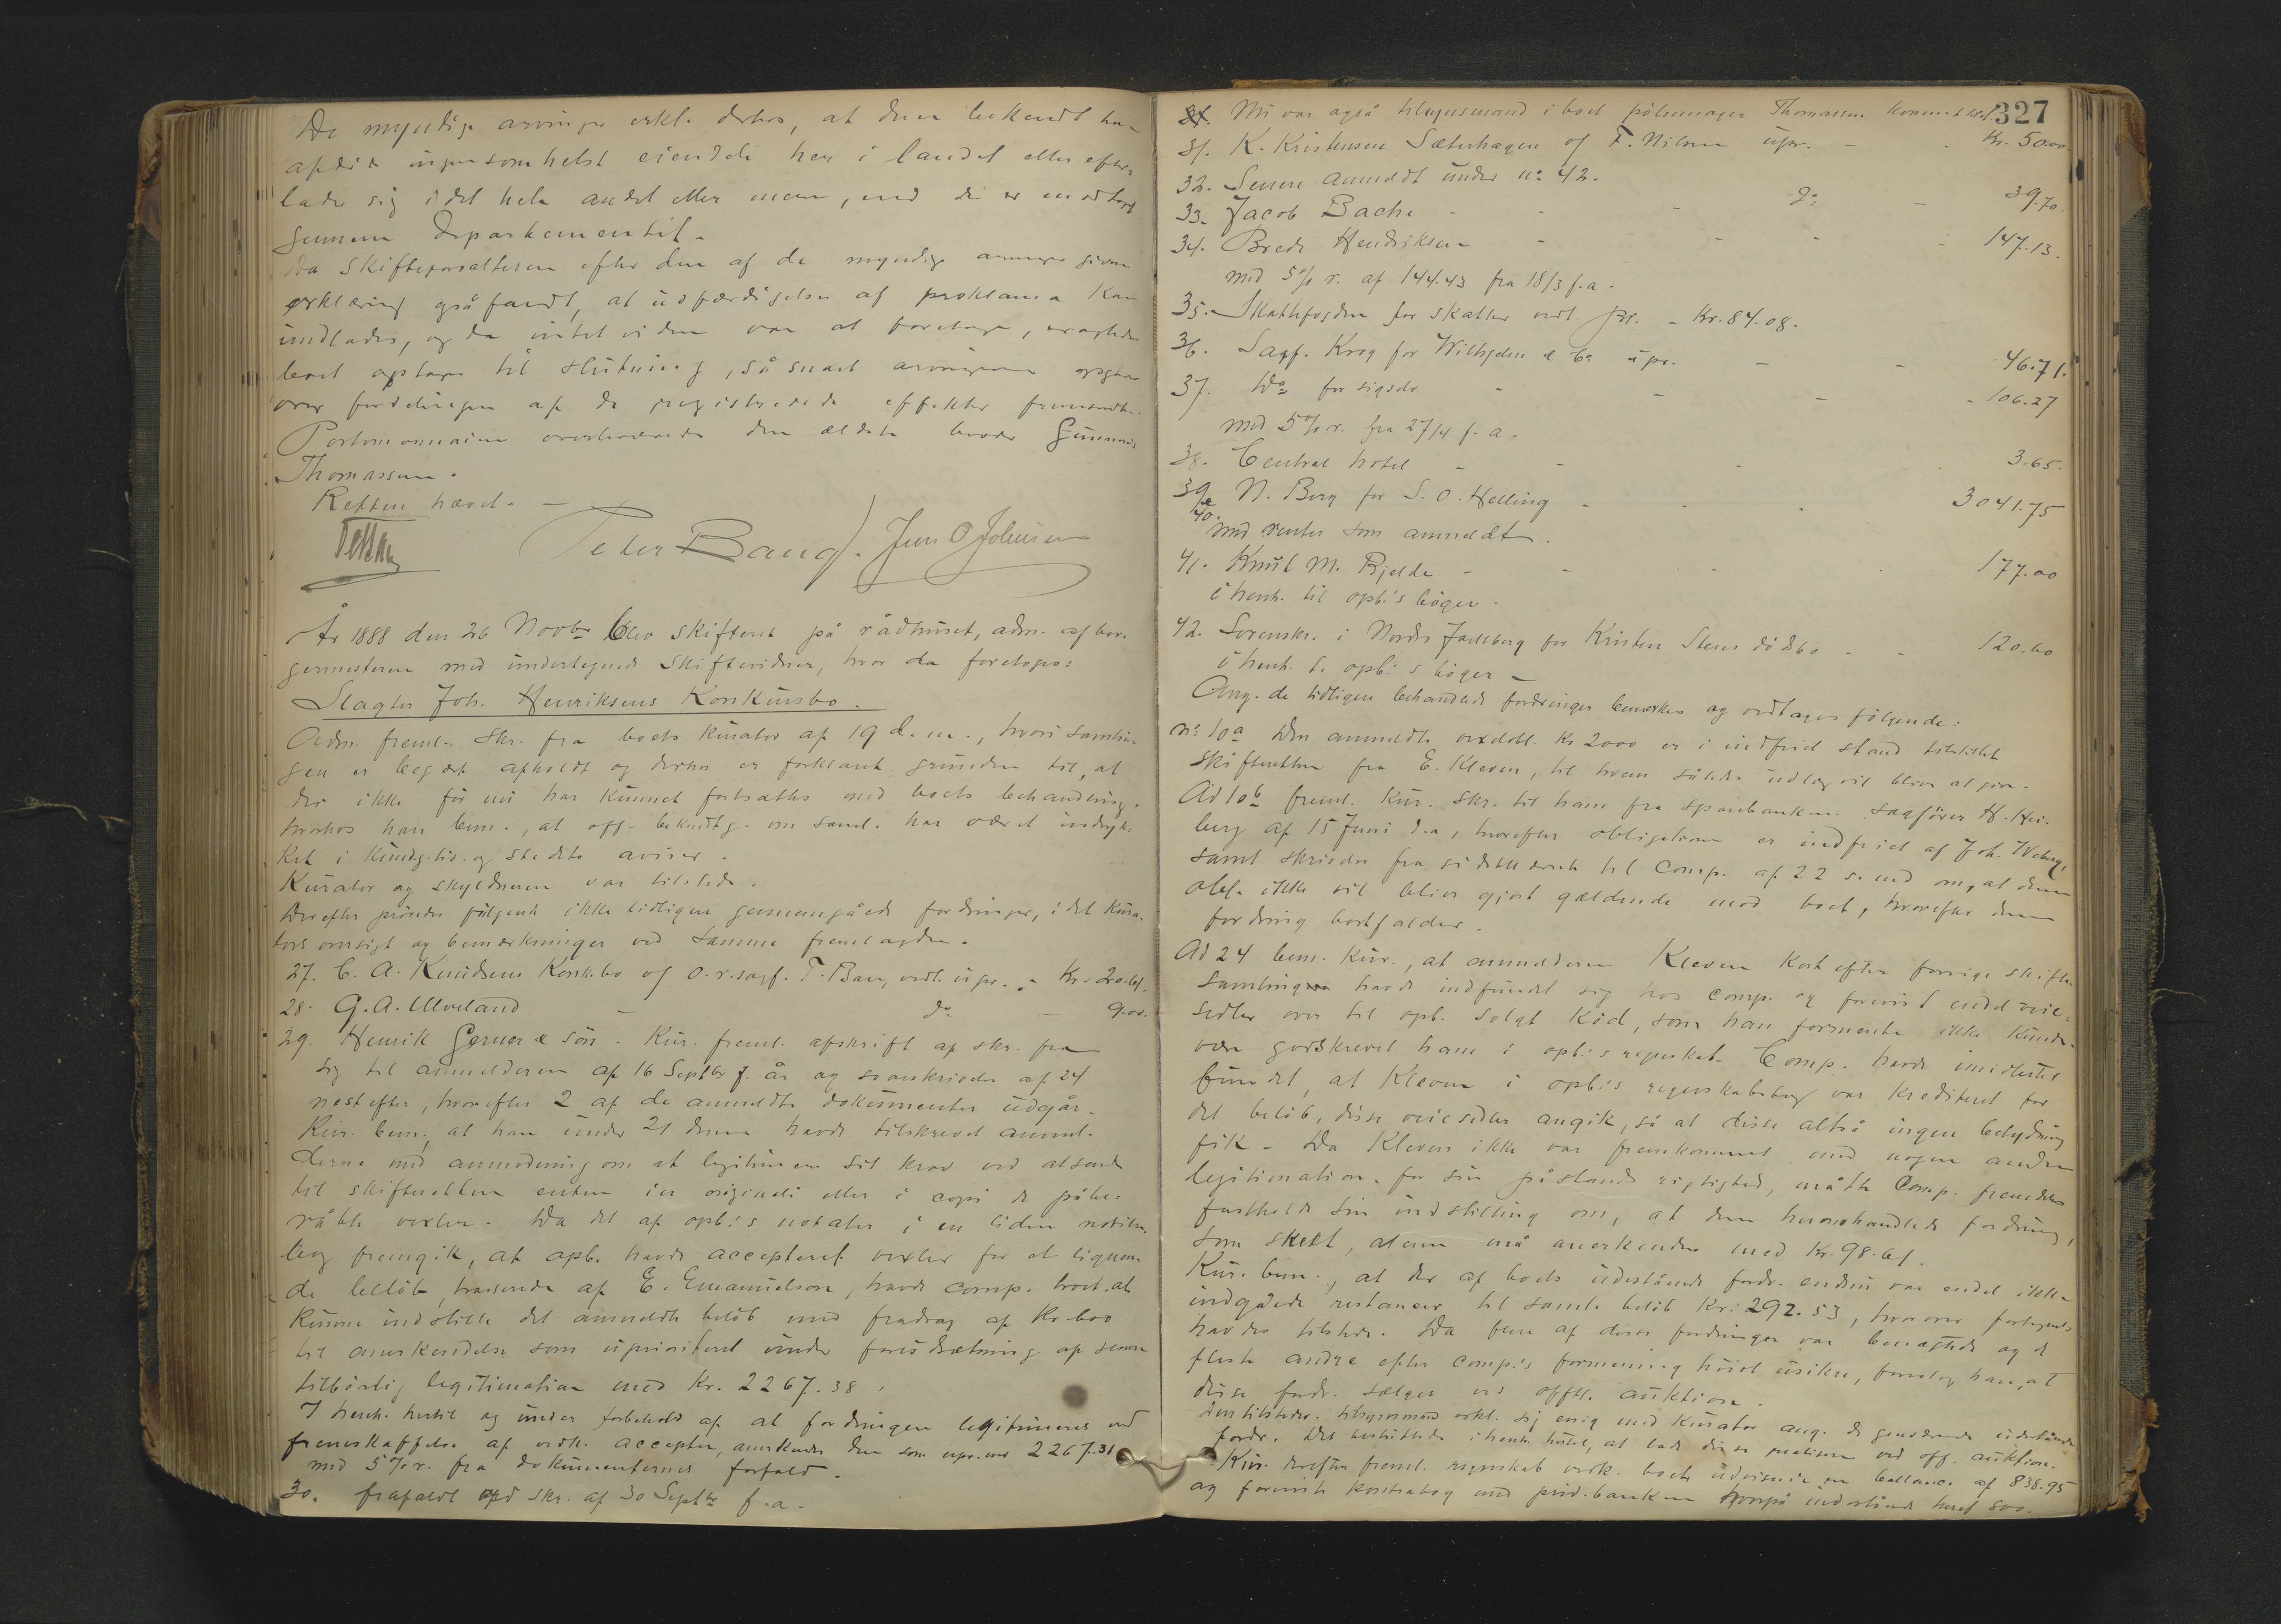 De myndige arvinger erkl. derhos, at den bekendt har
afdøde ingensomhelst eiendele her i landet eller efter-
lader sig i det hele andet eller mere, end de er modtaget
gennem Departementet.
Da skifteforvalteren efter den af de myndige arvinger givne
erklæring også fandt, at udfærdigelse af proklama kan
undlades, og da intet videre var at foretage,
boet optages til slutning, så snart arvingerne opgave
over fordelingen af de registrerede effekter fremsendtes.
Portemonnaien overleveredes den ældste broder Gunnar
Thomassen.
Retten hævet. —
Peter Bang. Jens O Johnsen
År 1888 den 26 Novbr blev skifteret på rådhuset, adm. af bor-
germesteren med undertegnede skiftevidner, hvor da foretoges:
Slagter Joh. Henriksens Konkursbo.
Adm. freml. skr. fra boets kurator af 19 d. m., hvori samlin-
gen er begært afholdt og derhos er forklaret grunden til, at
der ikke før nu har kunnet fortsættes med boets behandling,
hvorhos han bem., at off. bekendtg. om saml. har været indryk-
ket i kundg.tid. og stedets aviser.
Kurator og skyldneren var tilstede.
Derefter prøvedes følgende ikke tidligere gennemgåede fordringer, idet kura-
tors oversigt og bemærkninger ved samme fremlagdes.
27. C. A. Knudsens Konk.bo v/ o.r.sagf. T. Bau, vedt. upr. - Kr. 20.61.
28. G. A. Ulveland — do — 9.00.
29. Henrik Gerner & søn. Kur. freml. afskrift af skr. fra
sig til anmelderen af 16 Septbr f. år og svarskrivelse af 24
næstefter, hvorefter 2 af de anmeldte dokumenter udgår.
Kur. bem., at han under 21 dennes havde tilskrevet anmel-
derne med anmodning om at legitimere sit krav ved at sende
til skifteretten enten in originali eller i copi de påbe-
råbte vexler. Da det af opb.'s notater i en liden notits-
bog fremgik, at opb. havde accepteret vexler for et lignen-
de beløb, trasserede af E. Emanuelson, havde comp. troet at
kunne indstille det anmeldte beløb med fradrag af Kr. 600
til anerkendelse som uprioriteret under forudsætning af senere
tilbørlig legitimation med Kr. 2267.38.
I henh. hertil og under forbehold af at fordringen legitimeres ved
fremskaffelse af vedk. accepter, anerkendes den som upr. med 2267.31
med 5% r. fra dokumenternes forfald.
30. frafaldt ved skr. af 30 Septbr f.a.
327
Nu var også tilsynsmand i boet pølsemager Thomassen kommet tilst.
31. K. Kristensen Sæterhagen v/ F. Nilsen upr. - - Kr. 50.00.
32. Senere anmeldt under no 42.
33. Jacob Bache - - - do - 39.70.
34. Brede Hendriksen - - - - 147.13.
med 5% r. af 144.43 fra 18/3 f.a.
35. Skattefogden for skatter vedt. pr. - Kr. 84.08.
36. Sagf. Krog for Wilhjelm & Co upr. - - 46.71.
37. Do for sigselv - - - 106.27
med 5% r. fra 27/4 f. a.
38. Central hotel - - - - 3.65.
39 & 40. N. Berg for S. O. Helling - - - 3041.75
med renter som anmeldt.
41. Knut M. Bjelde - - - - 177.00
i henh. til opb.'s bøger.
42. Sorenskr. i Nordre Jarlsberg for Kristen Stens dødsbo - - 120.60
i henh. t. opb.'s bøger -
Ang. de tidligere behandlede fordringer bemærkes og vedtages følgende:
No 10a Den anmeldte vexelobl. Kr 2000 er i indfriet stand tilstillet
skifteretten fra E. Kleven, til hvem således udlæg vil blive at give.
Ad 10b freml. kur. skr. til ham fra sparebanken sagfører H. Hei-
berg af 15 Juni d.a., hvorefter obligationen er indfriet af Joh. Weberg,
samt skrivelse fra sidstnævnte til comp. af 22 s. md om, at denne
obl. ikke vil blive gjort gældende mod boet, hvorefter denne
fordring bortfalder.
Ad 24 bem. kur., at anmelderen Kleven kort efter forrige skifte-
samling havde indfundet sig hos comp. og forevist endel veie-
sedler over til opb. solgt kød, som han formente ikke kunde
være godskrevet ham i opb.'s regnskab. Comp. havde imidlertid
fundet, at Kleven i opb.'s regnskabsbog var krediteret for
det beløb, disse veiesedler angik, så at disse altså ingen betydning
fik. Da Kleven ikke var fremkommet med nogen anden
legitimation for sin påstands rigtighed, måtte Comp. fremdeles
fastholde sin indstilling om, at den heromhandlede fordring,
som skeet, alene må anerkendes med Kr. 98.61.
Kur. bem., at der af boets udestående fordr. endnu var endel ikke
indgåede restancer til samlet beløb Kr. 292.53, hvorover fortegnelse
havdes tilstede. Da flere af disse fordringer var benægtede og de
fleste andre efter comp.'s formening høist usikre, foreslog han, at
disse fordr. sælges ved offtl. auktion.
Den tilstedev. tilsynsmand erkl. sig enig med kurator ang. de genværende udestående
fordr. Det besluttedes i henh. hertil, at lade disse realisere ved off. auktion.
Kur. derefter freml. regnskab vedk. boets udvisende en ballance af 838.95
og foreviste kontrabog med priv. banken hvorpå indestående heraf 800.